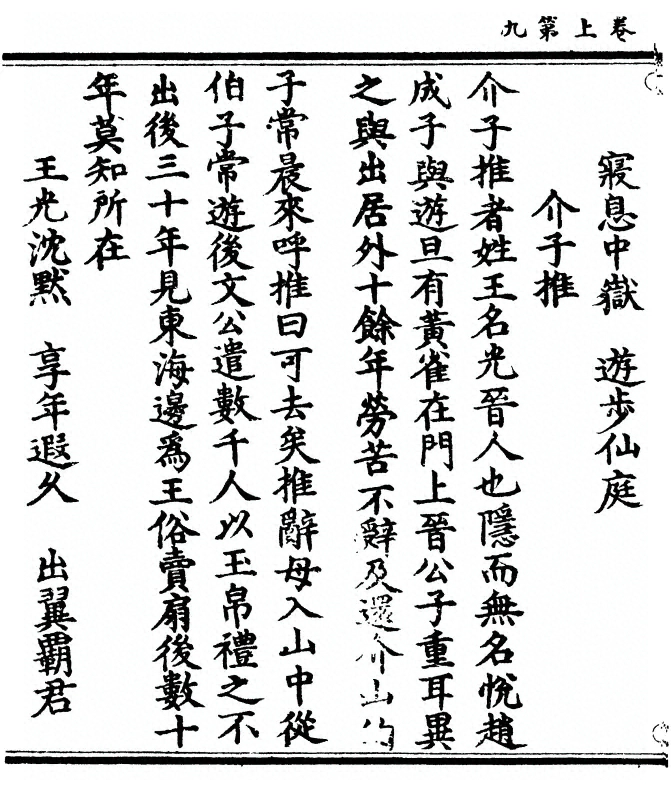 卷上第九
寢息中嶽　遊步仙庭
介子推
介子推者姓王名光晉人也隱而無名悅趙
成子與遊旦有黃雀在門上晉公子重耳異
之與出居外十餘年勞苦不辭及還介山伯
子常晨來呼推曰可去矣推辭母入山中從
伯子常遊後文公遣數千人以玉帛禮之不
出後三十年見東海邊爲王俗賣扇後數十
年莫知所在
王光沈默　享年遐久　出翼霸君